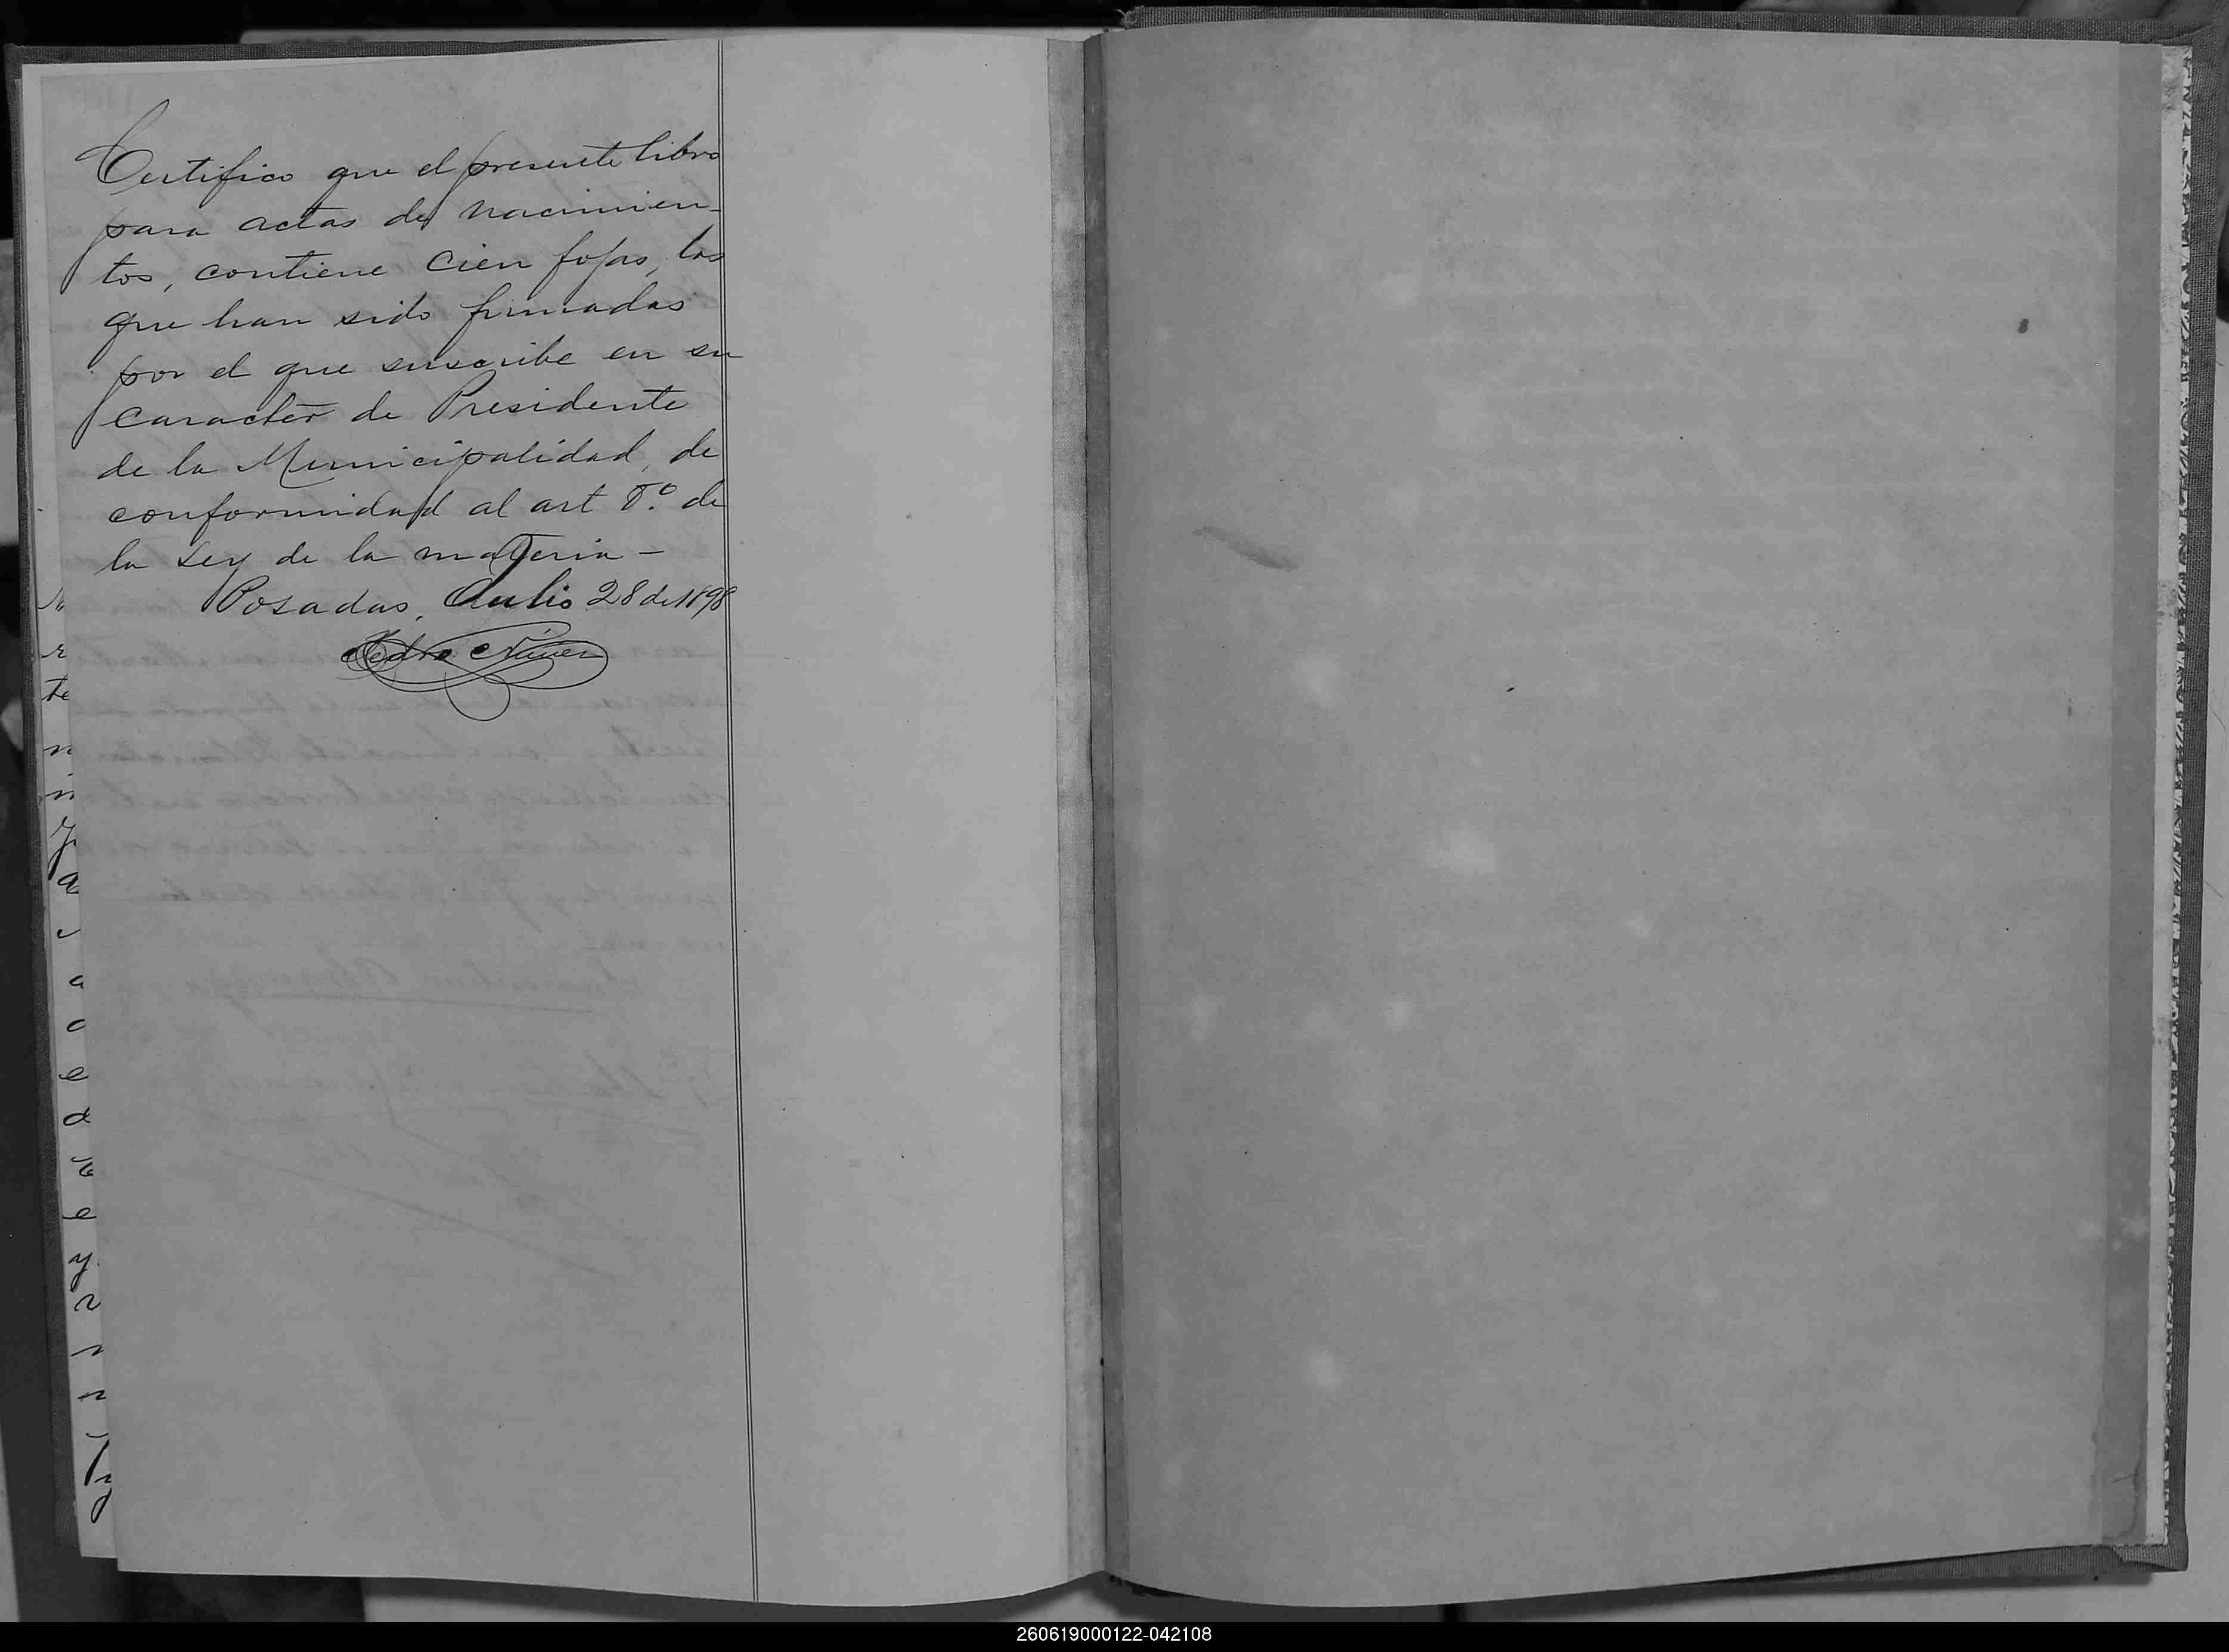 Certifico que el presente libro
para actas de nacimien-
tos, contiene cien fojas, las
que han sido firmadas
por el que suscribe en su
caracter de Presidente
de la Municipalidad, de
conformidad al art 8.º de
la Ley de la materia –
Posadas, Julio 28 de 1898
Pedro Nuñez
260619000122-042108